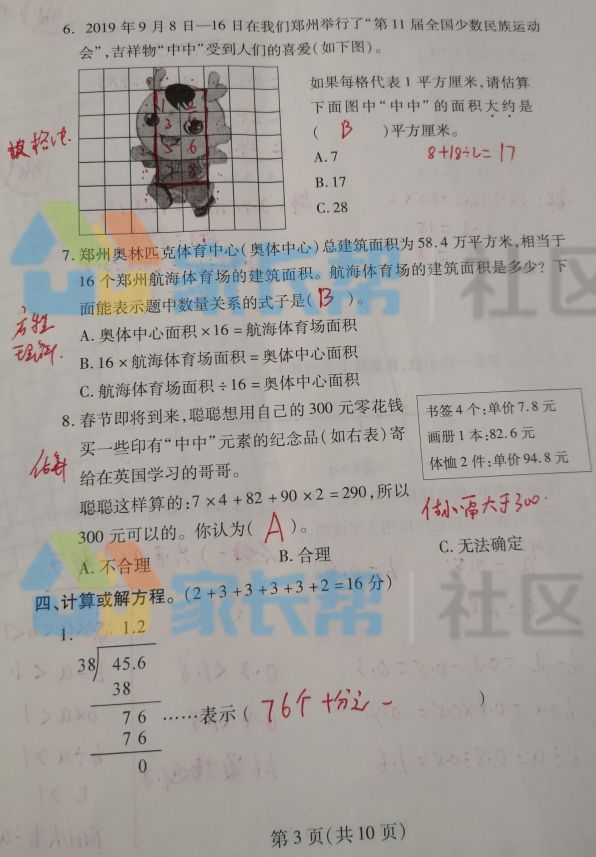 6. 2019 年 9 月 8 日—16 日在我们郑州举行了“第 11 届全国少数民族运动
会”,吉祥物“中中”受到人们的喜爱(如下图)。
如果每格代表 1 平方厘米,请估算
下面图中“中中”的面积大约是
( B )平方厘米。
A. 7
8+18÷2=17
B. 17
C. 28
7. 郑州奥林匹克体育中心(奥体中心)总建筑面积为 58.4 万平方米,相当于
16 个郑州航海体育场的建筑面积。航海体育场的建筑面积是多少? 下
面能表示题中数量关系的式子是( B )。
A. 奥体中心面积×16=航海体育场面积
B. 16×航海体育场面积=奥体中心面积
C. 航海体育场面积÷16=奥体中心面积
8. 春节即将到来,聪聪想用自己的 300 元零花钱
买一些印有“中中”元素的纪念品(如右表)寄
给在英国学习的哥哥。
书签 4 个:单价 7.8 元
画册 1 本:82.6 元
体恤 2 件:单价 94.8 元
估算
聪聪这样算的:7×4+82+90×2=290,所以
300 元可以的。你认为( A )。
估小需大于300.
A. 不合理
B. 合理
C. 无法确定
四、计算或解方程。(2+3+3+3+3+2=16 分)
1.
1.2
38 45.6
38
7 6 ……表示( 76个十分之一 )
7 6
0
第 3 页(共 10 页)
家长帮 社区
家长帮 社区